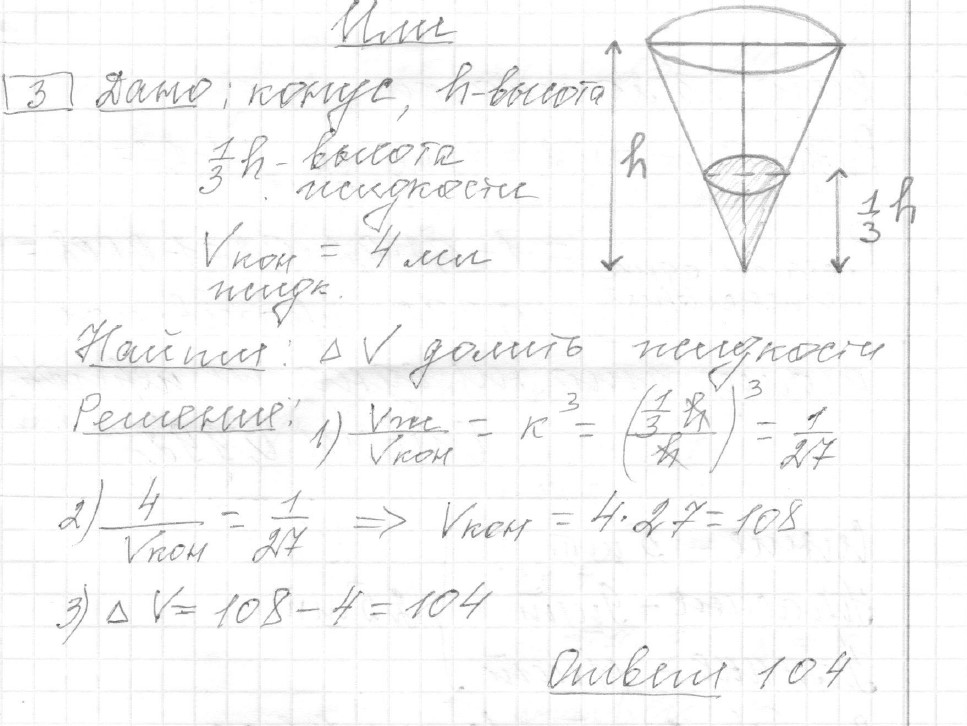 Или
3 Дано: конус, h-высота
1/3 h - высота
жидкости
Vкон = 4 мл
жидк.
h
1/3 h
Найти: ΔV долить жидкости
Решение: 1) Vж/Vкон = k³ = (1/3 h / h)³ = 1/27
2) 4/Vкон = 1/27 => Vкон = 4·27=108
3) ΔV = 108 - 4 = 104
Ответ 104